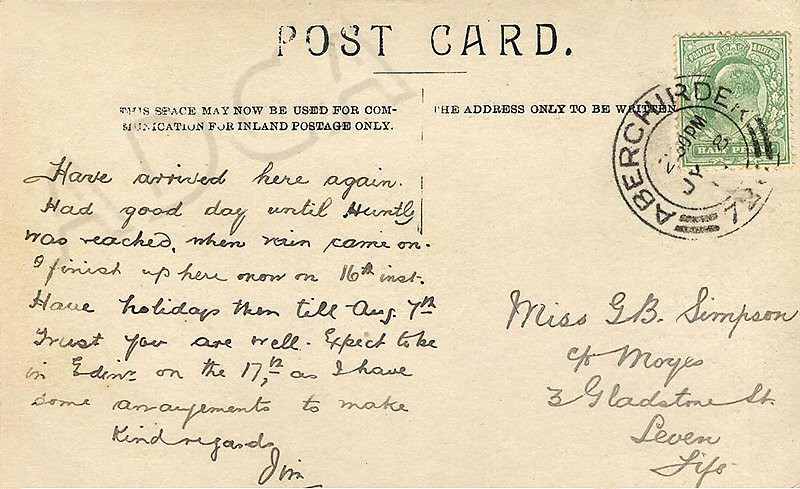 POST CARD.
THIS SPACE MAY NOW BE USED FOR COM-
MUNICATION FOR INLAND POSTAGE ONLY.
THE ADDRESS ONLY TO BE WRITTEN
POSTAGE
HALF PENNY
ABERCHIRDER
PM
JY
Have arrived here again.
Had good day until Huntly
was reached, when rain came on.
I finish up here now on 16th inst.
Have holidays then till Aug. 7th
Trust you are well. Expect to be
in Edinr. on the 17th, as I have
some arrangements to make
Kind regards
Jim
Miss G.B. Simpson
c/o Moyes
3 Gladstone St.
Leven
Fife